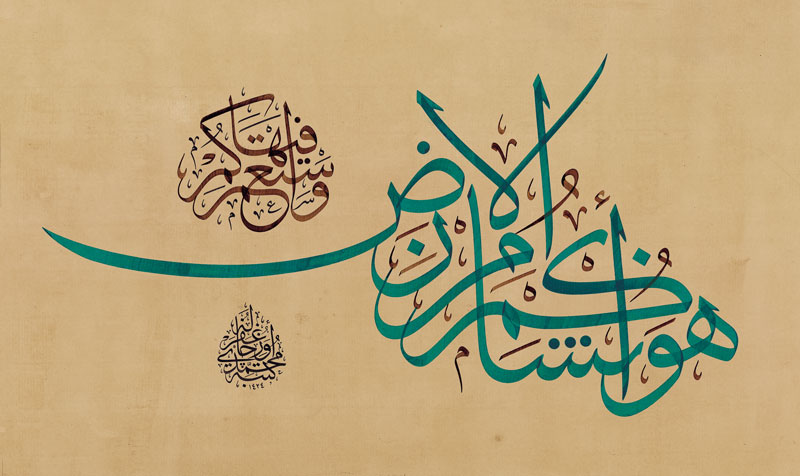 هو أنشأكم من الأرض
واستعمركم فيها
كتبه محمد اوزچاي غفر له
١٤٢٤